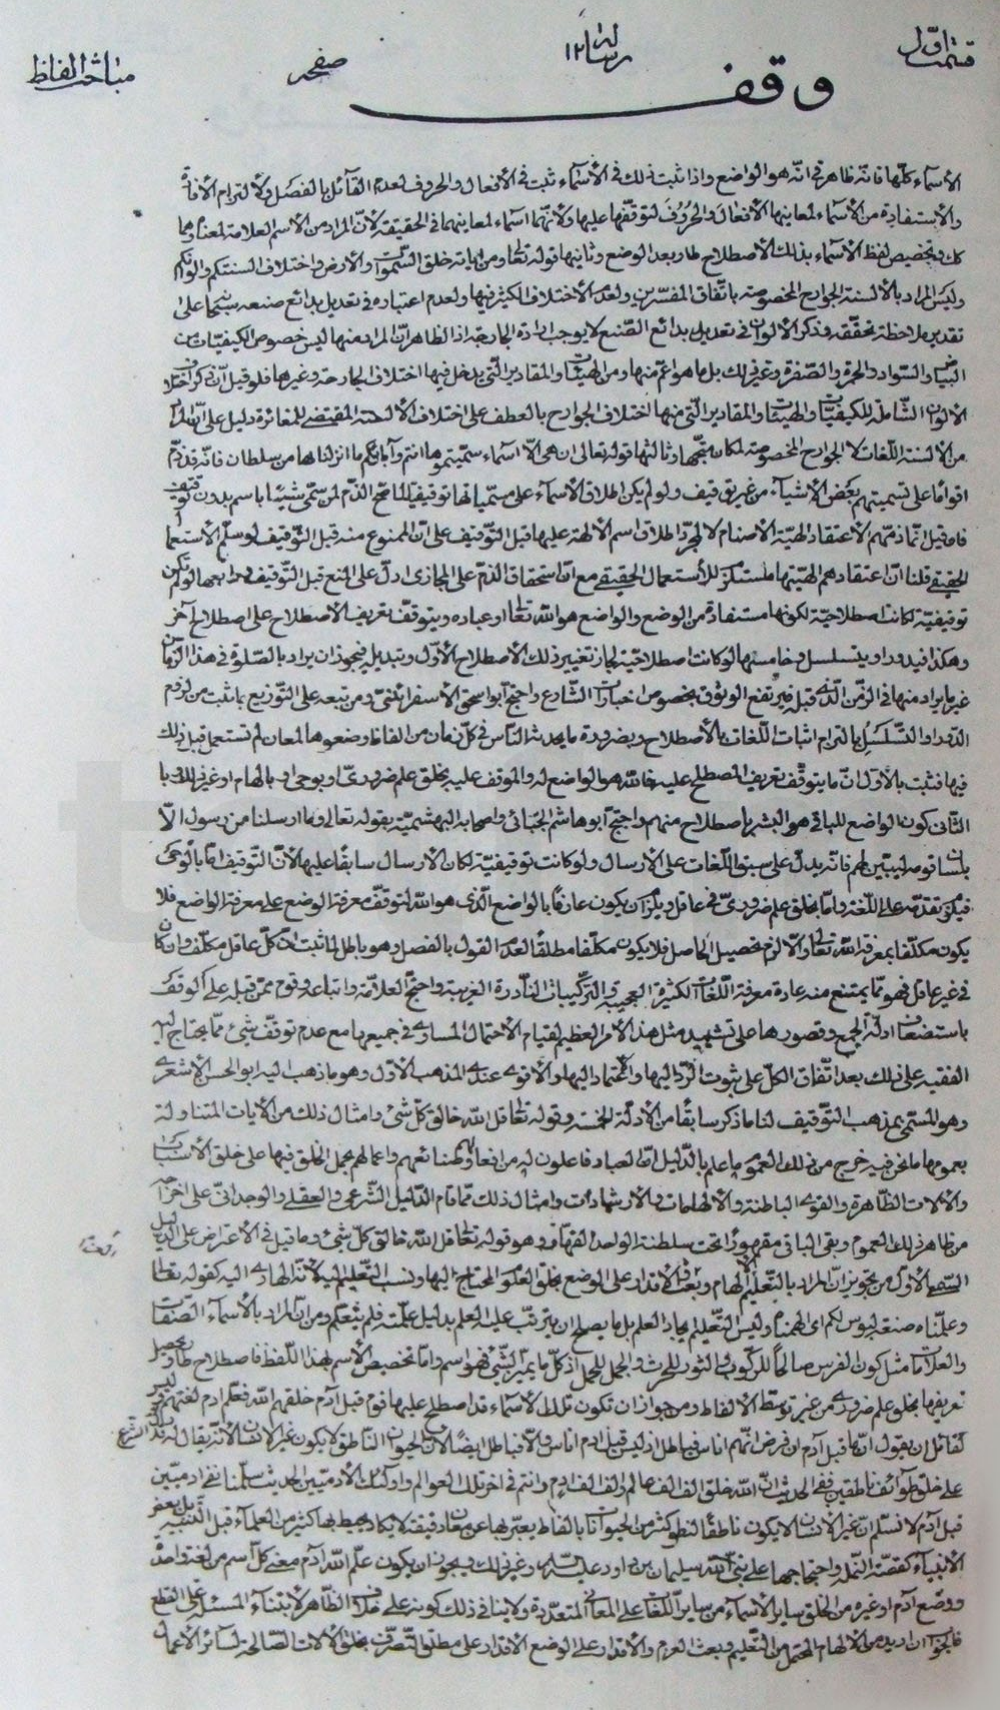 قسمت اول
رساله ۱۲
صفحه
مباحث الفاظ
وقف
الأسماء كلّها فانّه ظاهر في انّه هو الواضع واذا ثبت ذلك في الأسماء ثبت في الأفعال والحروف لعدم القائل بالفصل ولالتزام الأفادة
والاستفادة من الأسماء لمعانيها الأفعال والحروف لتوقّفها عليها ولأنّهما اسماء لمعانيهما في الحقيقة لأنّ المراد من الاسم العلامة لمعناه وهما
كك وتخصيص لفظ الأسماء بذلك الأصطلاح طار بعد الوضع وثانيها قوله تعالى ومن اياته خلق السّموات والأرض واختلاف السنتكم والوانكم
وليس المراد بالألسنة الجوارح المخصوصة باتّفاق المفسّرين ولعدم الأختلاف الكثير فيها ولعدم اعتباره في تعديل بدائع صنعه سيّما على
تقدير ملاحظة تحقّقه وذكر الألوان في تعديل بدائع الصّنع لا يوجب ارادة الجارحة اذ الظاهر انّ المراد منها ليس خصوص الكيفيّات من
البياض والسّواد والحمرة والصّفرة وغير ذلك بل ما هو اعمّ منها ومن الهيئات والمقادير الّتي يدخل فيها اختلاف الجارحة وغيرها فلو قيل انّ ذكر اختلاف
الألوان الشّاملة للكيفيّات والهيئات والمقادير الّتي منها اختلاف الجوارح بالعطف على اختلاف الألسنة المقتضي للمغائرة دليل على انّ المراد
من الألسنة اللّغات لا الجوارح المخصوصة لكان متّجها وثالثها قوله تعالى ان هي الّا اسماء سمّيتموها انتم وآباؤكم ما انزل الله بها من سلطان فانّه قد ذمّ
اقواما على تسميتهم بعض الأشياء من غير توقيف ولو لم يكن اطلاق الأسماء على مسمّياتها توقيفيّا لما صحّ الذّم لمن سمّى شيئا باسم بدون توقيف
فان قيل انّما ذمّهم لاعتقاد الهيّة الأصنام لا لمجرّد اطلاق اسم الألهة عليها قبل التّوقيف على انّ الممنوع منه قبل التّوقيف لو سلّم الأستعمال
الحقيقي قلنا انّ اعتقادهم الهيّتها مستلزم للأستعمال الحقيقي مع انّ استحقاق الذمّ على المجازي ادلّ على المنع قبل التّوقيف ورابعها لو لم تكن
توقيفيّة لكانت اصطلاحيّة لكونها مستفادة من الوضع والواضع هو الله تعالى او عباده ويتوقّف تعريف الاصطلاح على اصطلاح آخر
وهكذا فيدور او يتسلسل وخامسها لو كانت اصطلاحيّة لجاز تغيير ذلك الأصطلاح الأوّل وتبديله فيجوز ان يراد بالصّلوة في هذا الزمان
غير ما يراد منها في الزّمن الّذي قبله فيرتفع الوثوق بخصوص اخبارات الشّارع واحتجّ ابو اسحق الأسفرائني ومن تبعه على التّوزيع بما ثبت من لزوم
الدّور او التّسلسل بالتزام اثبات اللّغات بالأصطلاح وبضرورة ما يحدث النّاس في كلّ زمان من الفاظ وضعوها لمعان لم تستعمل قبل ذلك
فيها فثبت بالأوّل انّ ما يتوقّف تعريف المصطلح عليه فالله هو الواضع له والموقف عليه بخلق علم ضروريّ او بوحي او بالهام او غير ذلك وبا
الثّاني كون الواضع للباقي هو البشر باصطلاح منهم واحتجّ ابو هاشم الجبّائي واصحابه البهشميّة بقوله تعالى وما ارسلنا من رسول الّا
بلسان قومه ليبيّن لهم فانّه يدلّ على سبق اللّغات على الأرسال ولو كانت توقيفيّة لكان الأرسال سابقا عليها لأنّ التّوقيف امّا بالوحي
فيلزم تقدّمه على اللّغة وامّا بخلق علم ضروريّ في عاقل ويلزم ان يكون عارفا بالواضع الّذي هو الله لتوقّف معرفة الوضع على معرفة الواضع فلا
يكون مكلّفا بمعرفة الله تعالى والّا لزم تحصيل الحاصل فلا يكون مكلّفا مطلقا لعدم القول بالفصل وهو باطل لما ثبت انّ كلّ عاقل مكلّف وان كان
في غير عاقل فهو ممّا يمتنع منه عادة معرفة اللّغات الكثيرة العجيبة والتركيبات النّادرة الغريبة واحتجّ العلّامة واتباعه وقوم ممّن قبله على الوقف
باستضعاف ادلّة الجميع وقصورها على تشييد مثل هذا الأمر العظيم لقيام الأحتمال المساوي في جميعها مع عدم توقّف شيئ ممّا يحتاج اليه
الفقيه على ذلك بعد اتّفاق الكلّ على ثبوت الردّ اليها والأعتماد اليها والأقوى عندي المذهب الأوّل وهو ما ذهب اليه ابو الحسن الأشعري
وهو المسمّى بمذهب التّوقيف لنا ما ذكر سابقا من الأدلّة الخمسة وقوله تعالى قل الله خالق كلّ شيئ وامثال ذلك من الآيات المتناولة
بعمومها ما نحن فيه خرج من ذلك العموم ما علم بالدّليل انّ العباد فاعلون له من افعالهم وصنائعهم واعمالهم بجعل الخلق فيها على خلق الأسباب
والآلات الظّاهرة والقوى الباطنة والألهامات والأرشادات وامثال ذلك ممّا قام الدّليل الشّرعي والعقلي والوجدانيّ على اخراجه
من ظاهر ذلك العموم وبقي الباقي مقهورا تحت سلطنة الواحد القهّار وهو قوله تعالى قل الله خالق كلّ شيئ وما قيل في الأعتراض على الدّليل
السّمعي الأوّل من تجويز انّ المراد بالتّعليم الألهام وبعث الأقدار على الوضع بخلق العلوم المحتاج اليها ونسب التّعليم اليه لأنّه الهادي اليه كقوله تعالى
وعلّمناه صنعة لبوس لكم اي الهمناه وليس التّعليم ايجاد العلم بل ما يصلح ان يترتّب عليه العلم بدليل علّمته فلم يتعلّم ومن انّ المراد بالأسماء الصّفات
والعلامات مثل كون الفرس صالحا للرّكوب والثور للحرث والجمل للحمل اذ كلّ ما يميّز الشّيئ فهو اسم وامّا تخصيص الأسم بهذا اللّفظ فاصطلاح طار وتحصيل
تعريفها بخلق علم ضروريّ من غير توسّط الألفاظ ومن جواز ان تكون تلك الأسماء قد اصطلح عليها قوم قبل آدم خلقهم الله فعلّم آدم لغتهم وليس
لقائل ان يقول انّ ما قبل آدم ان فرض انّهم اناس فباطل اذ ليس قبل آدم اناس والّا فباطل ايضا لأنّ الحيوان النّاطق لا يكون غير الأنسان لأنّه يقال له قد دلّ الشّرع
على خلق طوائف ناطقين ففي الحديث انّ الله خلق الف الف عالم والف الف آدم وانتم في اخر تلك العوالم واولئك الآدميّين الحديث سلّمنا نفي ادميّين
قبل آدم لا نسلّم انّ غير الأنسان لا يكون ناطقا لنطق كثير من الحيوانات بالفاظ يعبّر بها عن معان دقيقة لا يكاد يحيط بها كثير من العلماء قبل التّنبيه بل بعض
الأنبياء كقصّة النّملة واحتجاجها على نبيّ الله سليمان بن داود عليه السّلام وغير ذلك ويجوز ان يكون علّم الله آدم معنى كلّ اسم من لغة واحدة
ووضع آدم او غيره من الخلق ساير الأسماء من ساير اللّغات على المعاني المتعدّدة ولا ينافي ذلك كونه على خلاف الظّاهر لابتناء المسئلة على القطع
فالجواب ان اريد من الألهام المحتمل من التّعليم وبعث العزم والأقدار على الوضع الأقدار على مطلق التّصرّف بخلق الآلات الصّالحة لسائر الأعمال